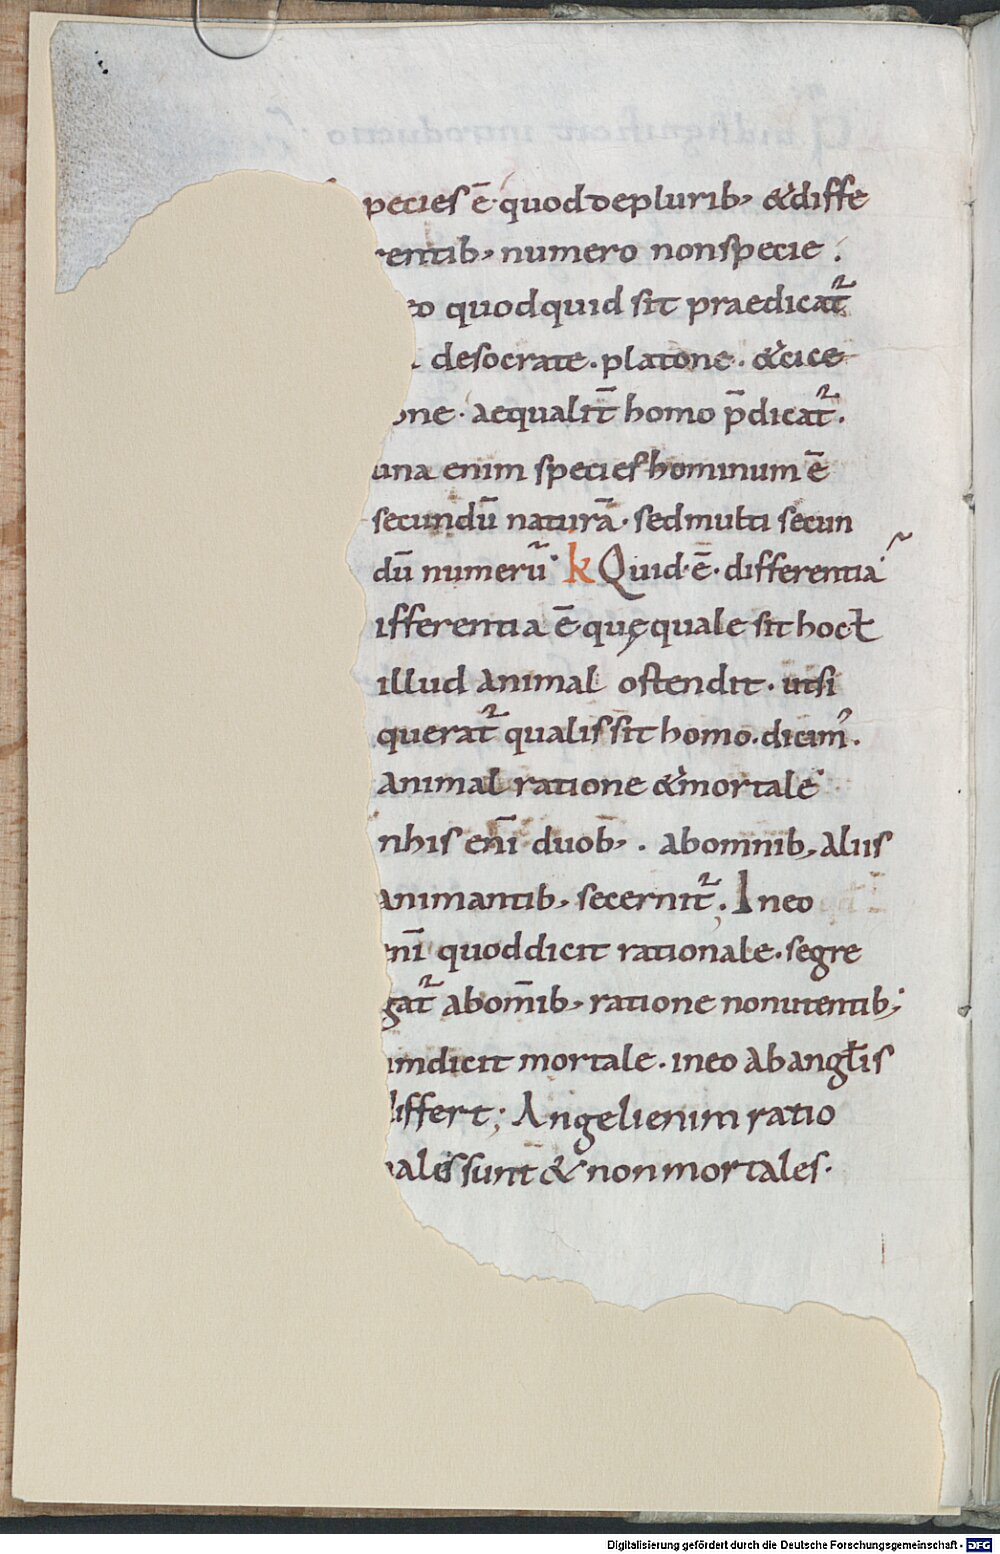 pecies ē· quod de plurib; & diffe
rentib; numero non specie.
eo quod quid sit praedicat̄
de socrate. platone. & cice
one· aequalit̄ homo p̄dicat̄.
una enim species hominum ē
secundū naturā· sed multi secun
dū numerū· k Quid· ē· differentia
ifferentia ē quę quale sit hoc ł
illud animal ostendit· ut si
querat̄ qualis sit homo. dicim᾿.
animal ratione & mortale
n his eni̅ duob; . ab omnib; aliis
animantib; secernit̄. In eo
eni̅ quod dicit rationale. segre
gat̄ ab om̅ib; ratione non utentib;
um dicit mortale. in eo ab angłis
differt; Angeli enim ratio
nales sunt & non mortales·
Digitalisierung gefördert durch die Deutsche Forschungsgemeinschaft - DFG